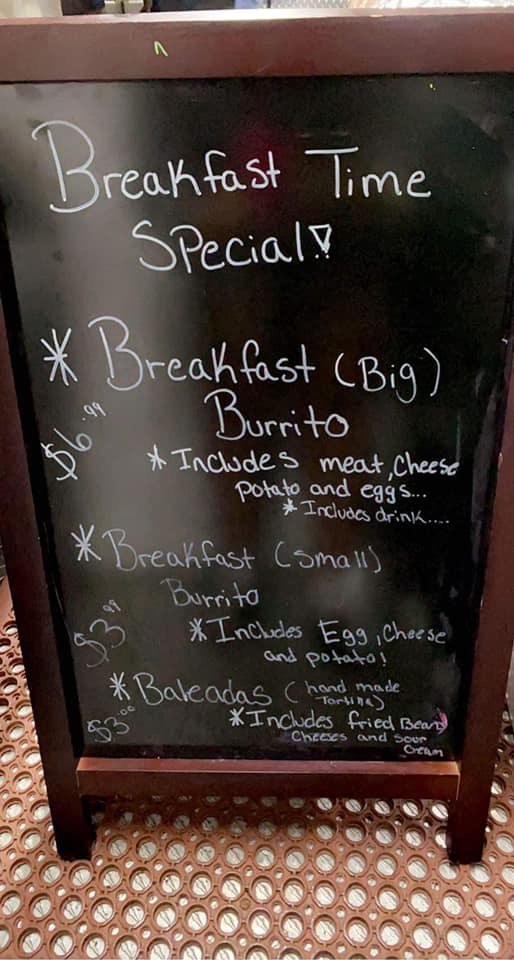 Breakfast Time
Special!
* Breakfast (Big)
Burrito
$6.99
* Includes meat, Cheese
Potato and eggs...
* Includes drink....
* Breakfast (Small)
Burrito
$3.99
* Includes Egg, Cheese
and potato!
* Baleadas (hand made
Tortilla)
$3.00
* Includes fried Beans
Cheeses and Sour
Cream